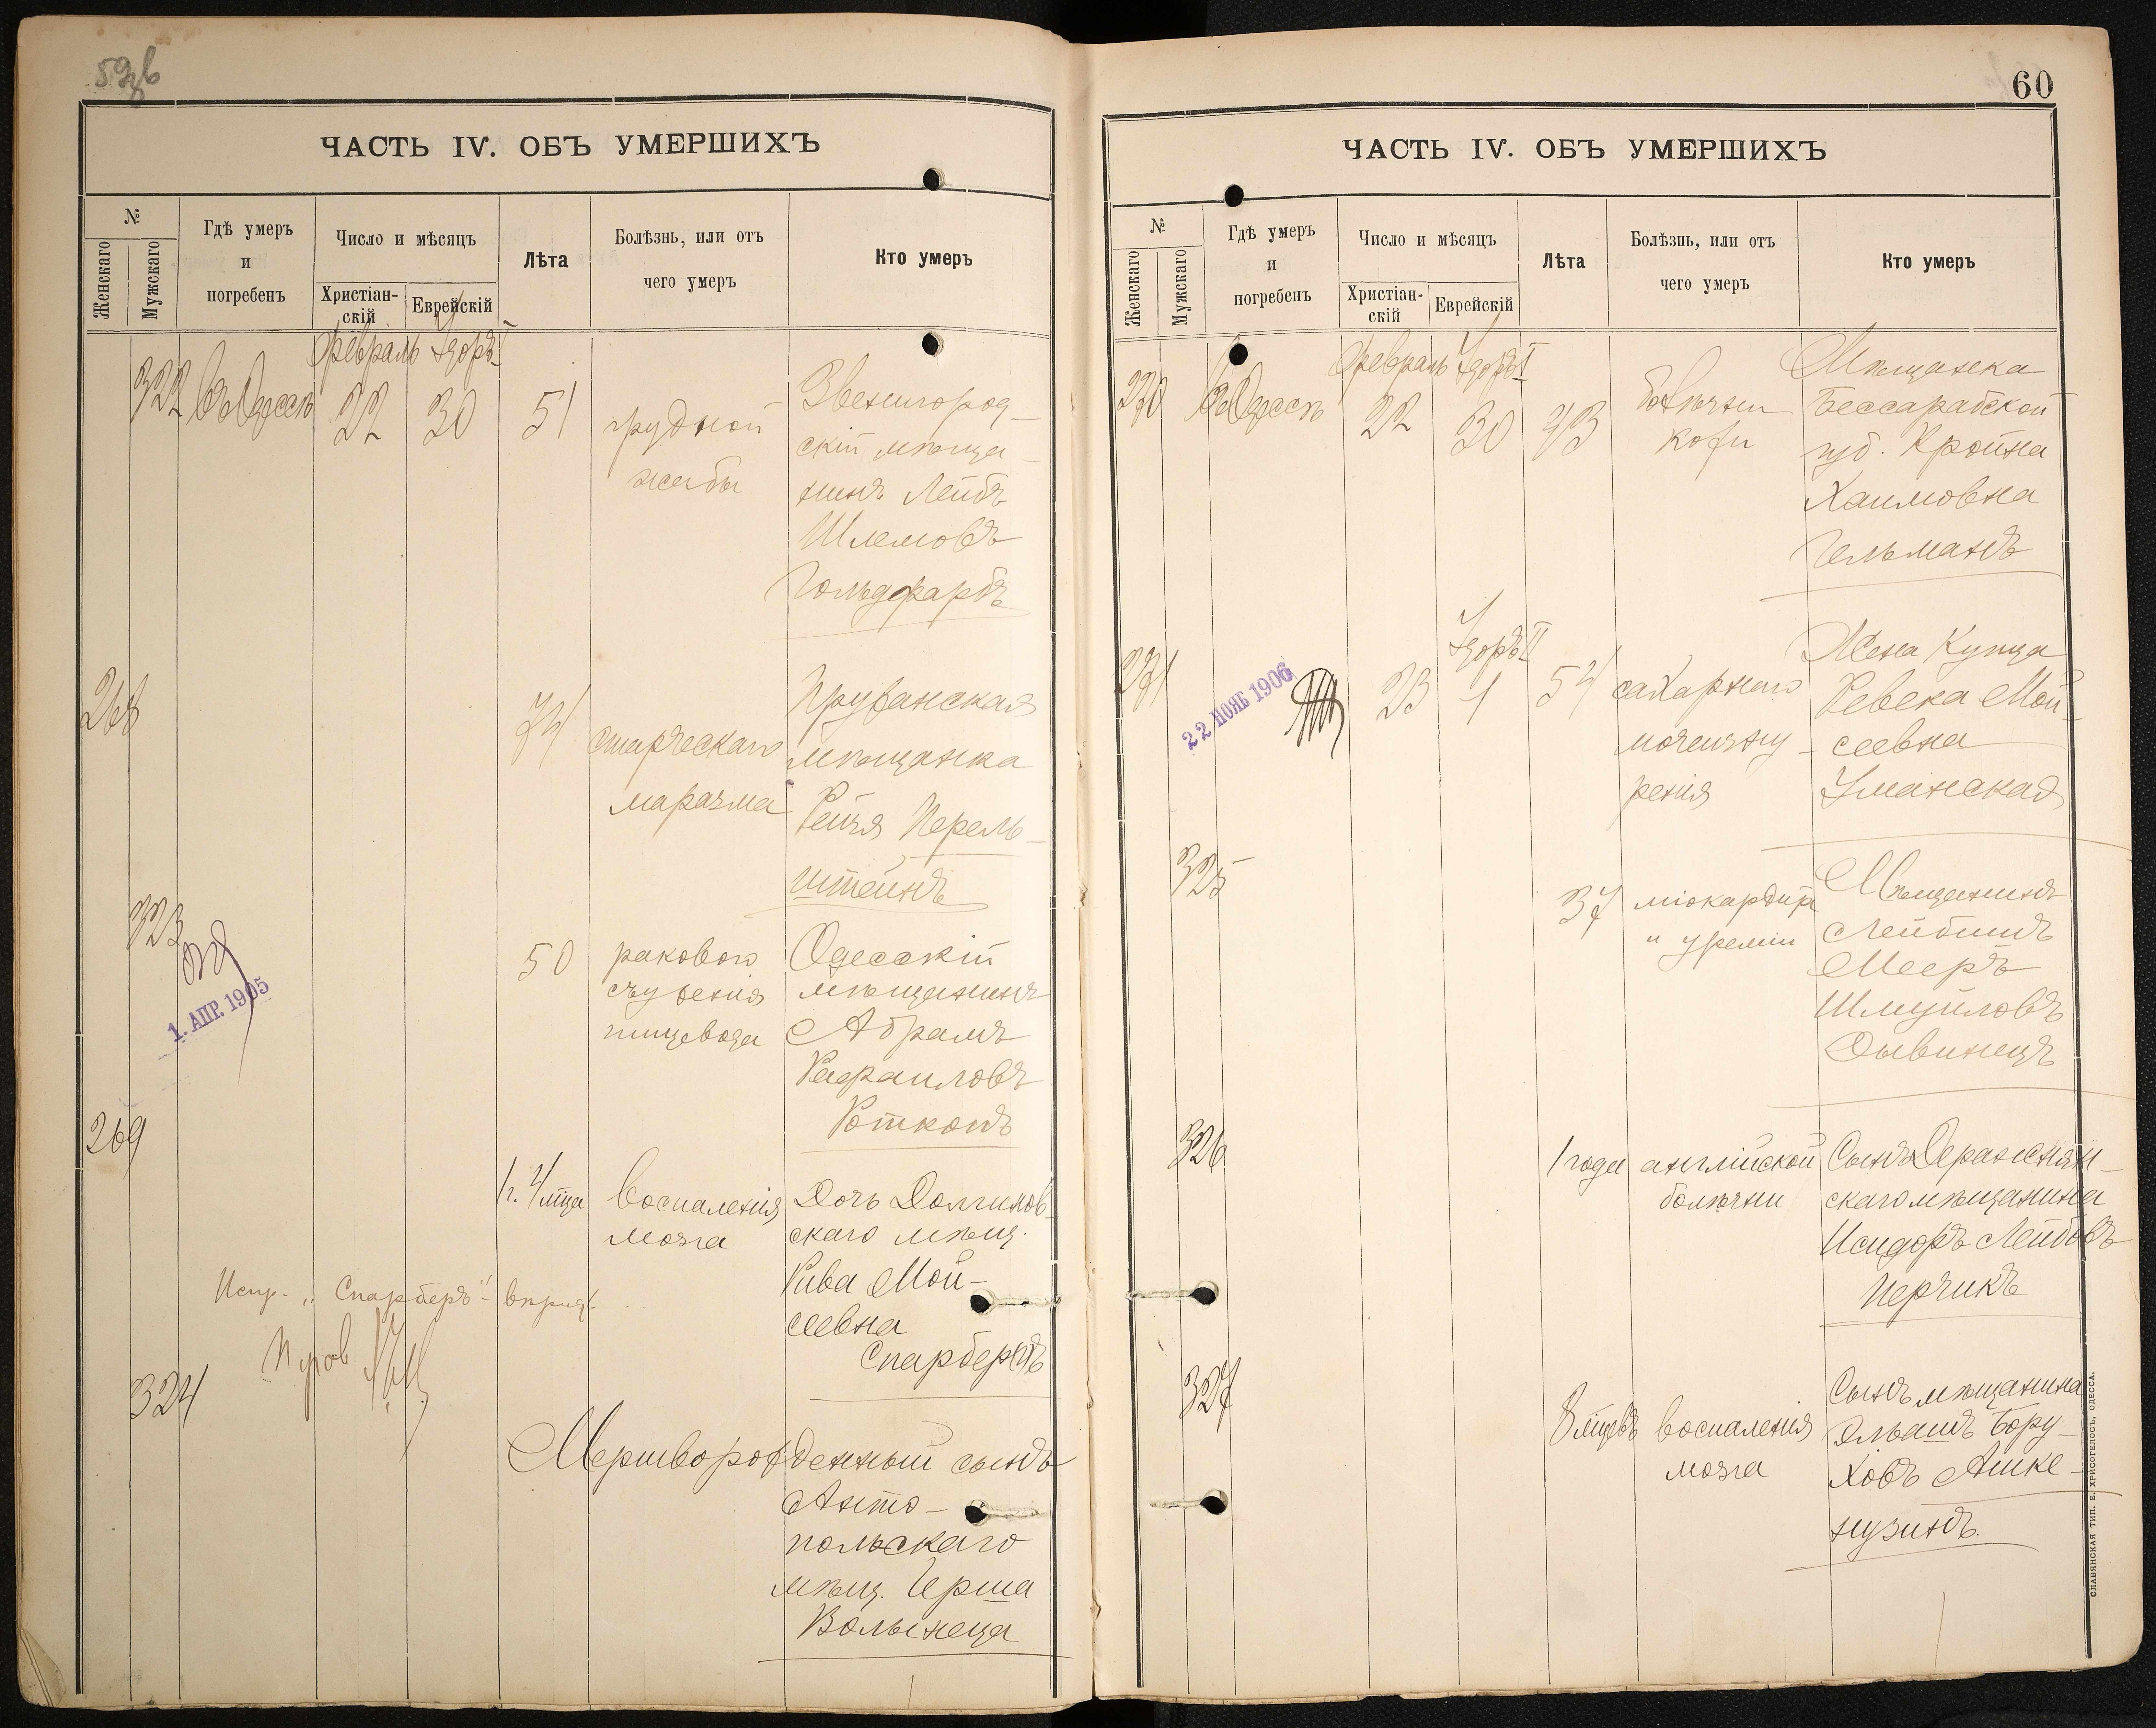 59 об
ЧАСТЬ IV. ОБЪ УМЕРШИХЪ
№
Женскаго
Мужскаго
Гдѣ умеръ
и
погребенъ
Число и мѣсяцъ
Христіан-
скій
Еврейскій
Лѣта
Болѣзнь, или отъ
чего умеръ
Кто умеръ
Февраль Адаръ I
322 въ Одессѣ 22 30 51 грудной
жабы
Звенигород-
скій мѣща-
нинъ Лейбъ
Шлемовъ
Гольдфарбъ
268
74 старческаго
маразма
Пружанская
мѣщанка
Рейзя Перель-
штейнъ
323
1. АПР. 1905
50 раковаго
съуженія
пищевода
Одесскій
мѣщанинъ
Абрамъ
Рафаиловъ
Ротконъ
269
1 г. 4 мца воспаленія
мозга
Дочь Долгинов-
скаго мѣщ.
Рива Мой-
сеевна
Спарберъ
Испр. „Спарберъ"
324
Мертворожденный сынъ
Анто-
польскаго
мѣщ. Герша
Волынеца
60
ЧАСТЬ IV. ОБЪ УМЕРШИХЪ
№
Женскаго
Мужскаго
Гдѣ умеръ
и
погребенъ
Число и мѣсяцъ
Христіан-
скій
Еврейскій
Лѣта
Болѣзнь, или отъ
чего умеръ
Кто умеръ
Февраль Адаръ I
270 въ Одессѣ 22 30 43 болѣзни
кожи
Мѣщанка
Бессарабской
губ. Кройна
Хаимовна
Гельманъ
Адаръ II
271
22 НОЯБ 1906
23 1 54 сахарнаго
мочеизну-
ренія
Жена Купца
Ревека Мой-
сеевна
Уманская
325
37 міокардита
и уреміи
Мѣщанинъ
Лейбишъ
Мееръ
Шмуйловъ
Дывинецъ
326
1 года англійской
болѣзни
Сынъ Деражнян-
скаго мѣщанина
Исидоръ Лейбовъ
Перчикъ
327
8 мцевъ воспаленія
мозга
Сынъ мѣщанина
Эльяшъ Бору-
ховъ Ашке-
нузинъ.
СЛАВЯНСКАЯ ТИП. Е. ХРИСОГЕЛОСЪ, ОДЕССА.